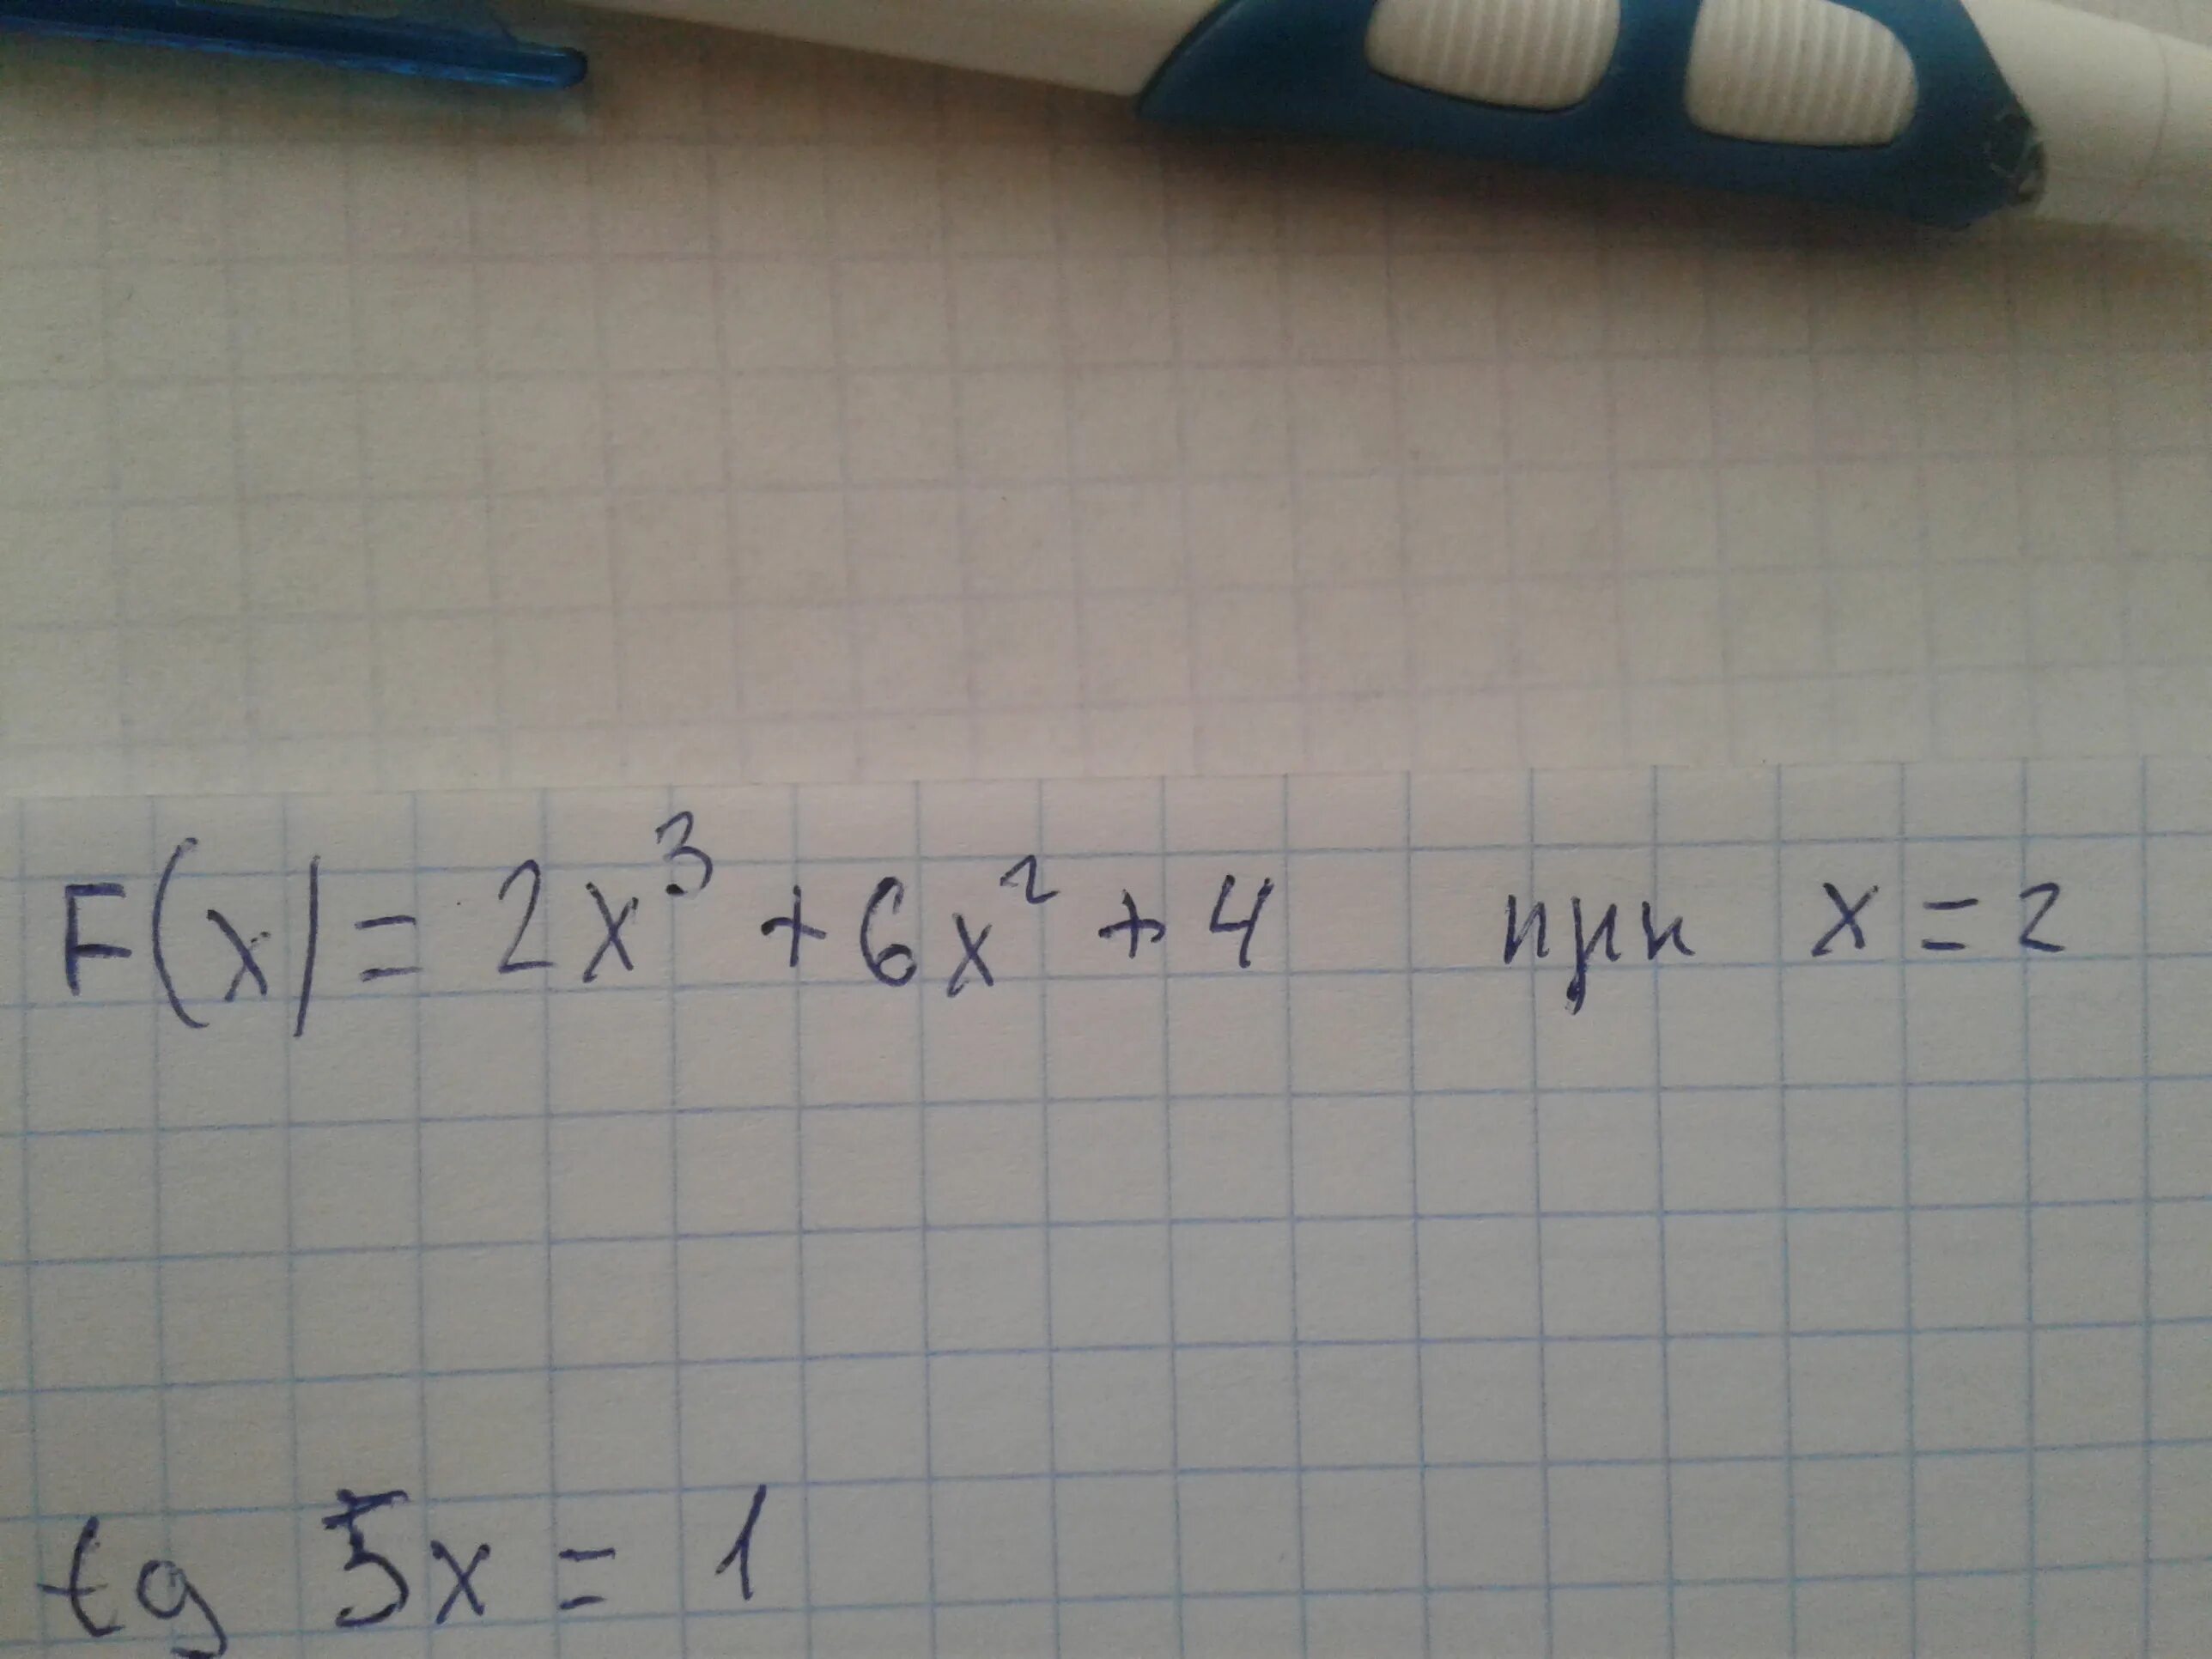 F(x) = 2x³ + 6x² + 4 при x = 2
tg 5x = 1